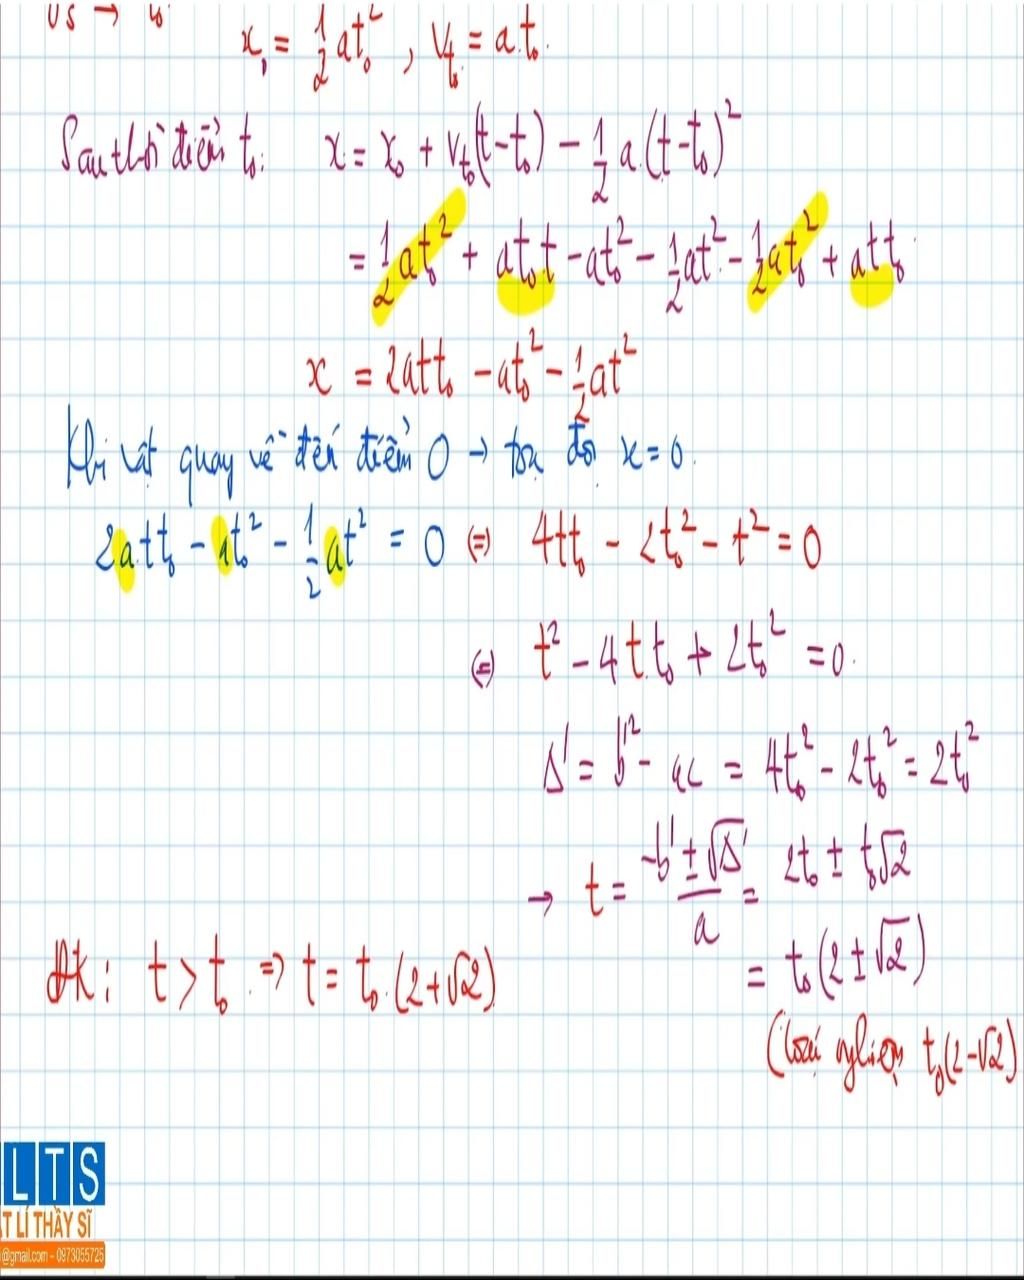 0s → t₀.
x₀ = 1/2 at₀² , v_t₀ = a.t₀.
Sau thời điểm t₀: x = x₀ + v_t₀(t-t₀) - 1/2 a.(t-t₀)²
= 1/2 at₀² + at₀t - at₀² - 1/2 at² - 1/2 at₀² + att₀
x = 2att₀ - at₀² - 1/2 at²
Khi vật quay về đến điểm 0 → toạ độ x = 0.
2att₀ - at₀² - 1/2 at² = 0 (=) 4tt₀ - 2t₀² - t² = 0
(=) t² - 4t.t₀ + 2t₀² = 0.
Δ' = b'² - ac = 4t₀² - 2t₀² = 2t₀²
→ t = (-b' ± √Δ')/a = 2t₀ ± t₀√2
= t₀(2 ± √2)
ĐK: t > t₀ => t = t₀.(2+√2)
(loại nghiệm t₀(2-√2)
LTS
T LÍ THẦY SĨ
@gmail.com - 0973055725